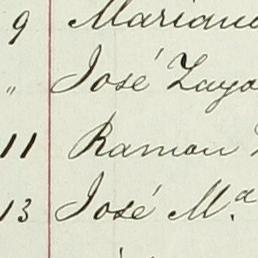 9 Mariano
" José Zayo
11 Ramon
13 José M.ª